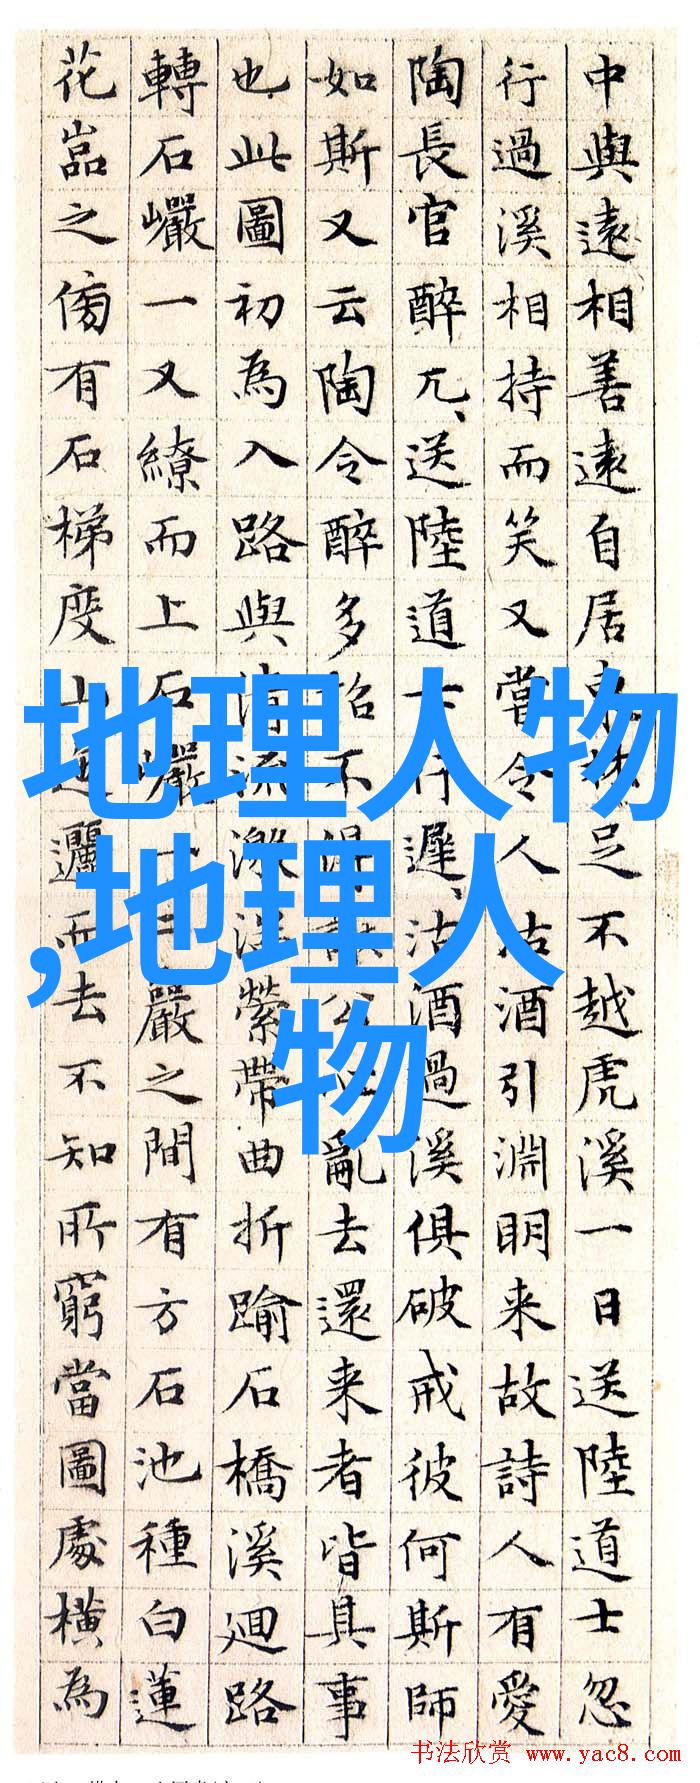 中與遠相善遠自居東林足不越虎溪一日送陸道士忽
行過溪相持而笑又嘗令人沽酒引淵明来故詩人有愛
陶長官醉兀、送陸道士行遲、沽酒過溪俱破戒彼何斯師
如斯又云陶令醉多招不得謝公心亂去還来者皆其事
也此圖初為入路與清流激湍縈帶曲折踰石橋溪迴路
轉石巖一又繚而上石巖一二巖之間有方石池種白蓮
花嵓之傍有石梯度山迤邐而去不知所窮當圖處橫為
地理人物
,地理人
物
书法欣赏 www.yac8.com